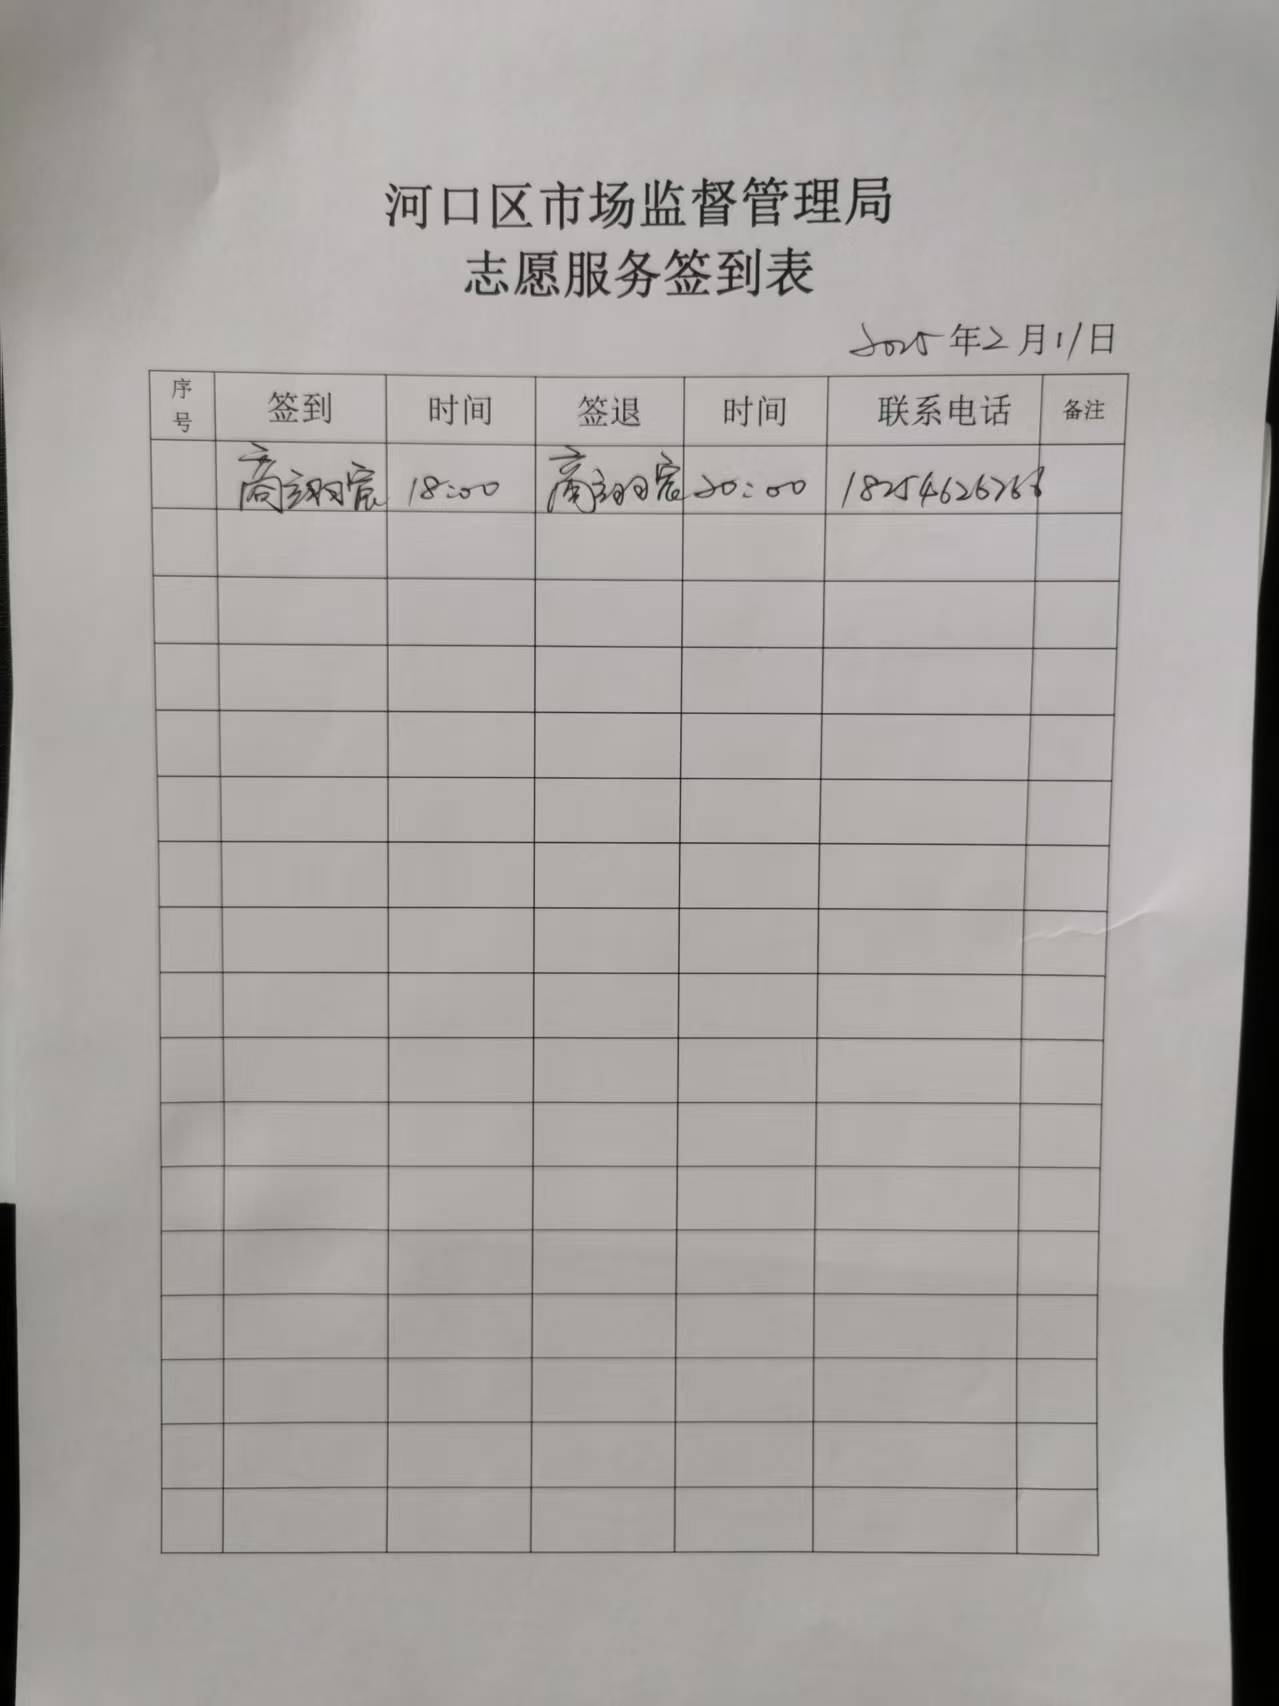 河口区市场监督管理局
志愿服务签到表
2025年2月11日
序号 签到 时间 签退 时间 联系电话 备注
商翊宸 18:00 商翊宸 20:00 18254626268